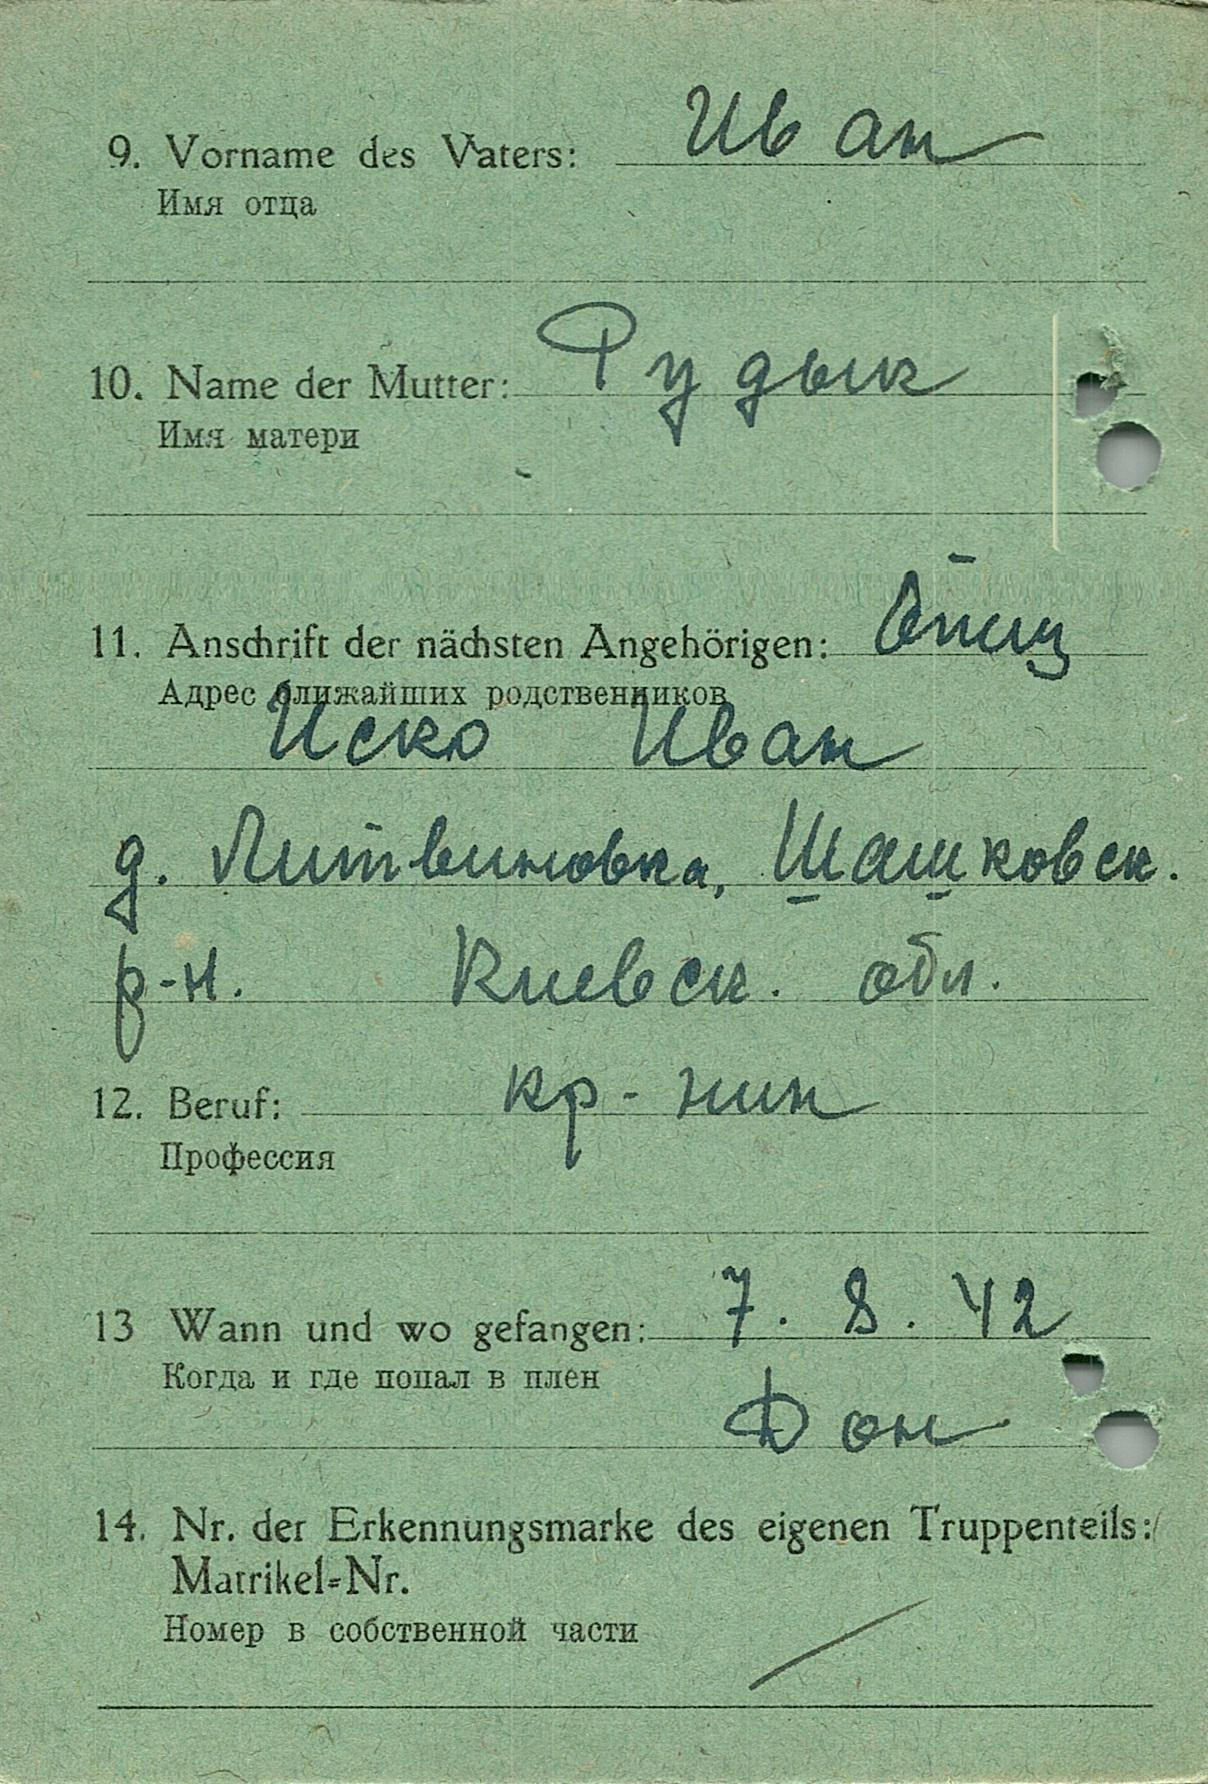 9. Vorname des Vaters: Иван
Имя отца
10. Name der Mutter: Рудык
Имя матери
11. Anschrift der nächsten Angehörigen: Отец
Адрес ближайших родственников
Иско Иван
д. Литвиновка, Шашковск.
р-н. Киевск. обл.
12. Beruf: кр-нин
Профессия
13 Wann und wo gefangen: 7. 8. 42
Когда и где попал в плен
Дон
14. Nr. der Erkennungsmarke des eigenen Truppenteils:
Matrikel-Nr.
Номер в собственной части